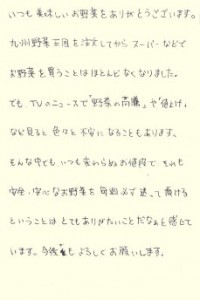 いつも美味しいお野菜をありがとうございます。
九州野菜百同を注文してから スーパーなどで
お野菜を買うことはほとんどなくなりました。
でも TVのニュースで「野菜の高騰」や「値上げ」
など見ると 色々と不安になることもあります。
そんな中でも いつも変わらぬお値段で それも
安全・安心なお野菜を 毎週必ず送って頂ける
ということは とてもありがたいことだなぁと感じて
います。今後もよろしくお願いします。